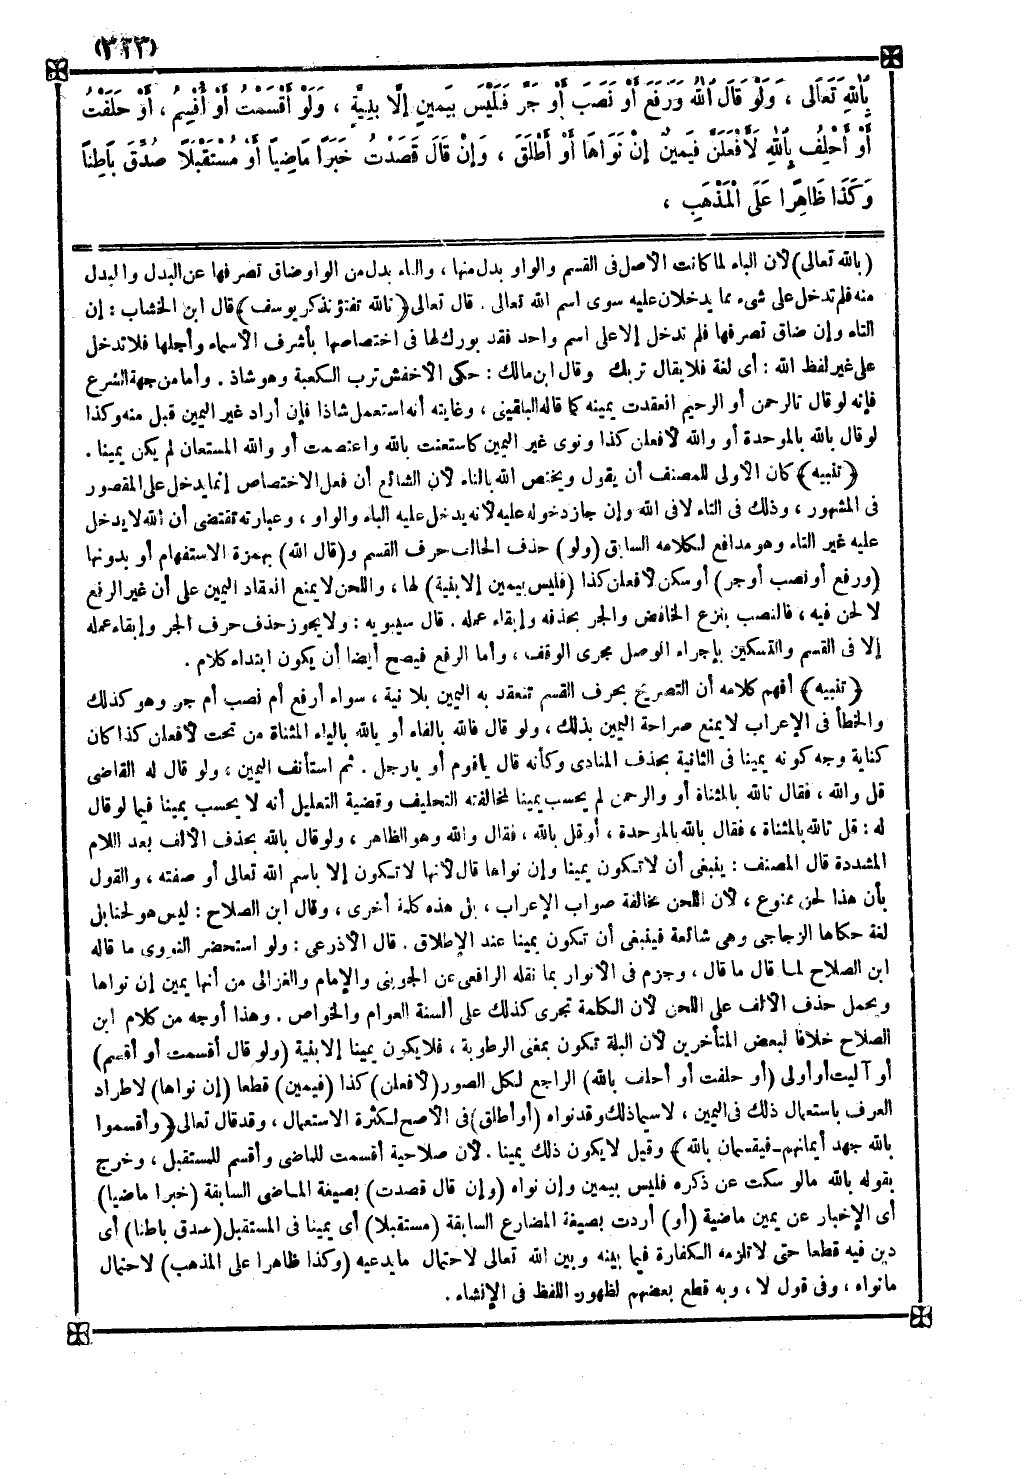 (٣٢٣)
بِاللهِ تَعَالَى ، وَلَوْ قَالَ اللهُ وَرَفَعَ أَوْ نَصَبَ أَوْ جَرَّ فَلَيْسَ بِيَمِينٍ إلَّا بِنِيَّةٍ ، وَلَوْ أَقْسَمْتُ أَوْ أُقْسِمُ ، أَوْ حَلَفْتُ
أَوْ أَحْلِفُ بِاللهِ لَأَفْعَلَنَّ فَيَمِينٌ إنْ نَوَاهَا أَوْ أَطْلَقَ ، وَإنْ قَالَ قَصَدْتُ خَبَرًا مَاضِياً أَوْ مُسْتَقْبَلاً صُدِّقَ بَاطِناً
وَكَذَا ظَاهِرًا عَلَى الْمَذْهَبِ ،
(بالله تعالى) لأن الباء لما كانت الأصل فى القسم والواو بدل منها ، والتاء بدل من الواو ضاق تصرفها عن البدل والمبدل
منه فلم تدخل على شىء مما يدخلان عليه سوى اسم الله تعالى . قال تعالى ﴿تالله تفتؤ تذكر يوسف﴾ قال ابن الخشاب : إن
التاء وإن ضاق تصرفها فلم تدخل إلا على اسم واحد فقد بورك لها فى اختصاصها بأشرف الأسماء وأجلها فلا تدخل
على غير لفظ الله : أى لغة فلا يقال تربك وقال ابن مالك : حكى الأخفش ترب الكعبة وهو شاذ . وأما من جهة الشرع
فإنه لو قال تالرحمن أو الرحيم انعقدت يمينه كما قاله البلقينى ، وغايته أنه استعمل شاذا فإن أراد غير اليمين قبل منه وكذا
لو قال بالله بالموحدة أو والله لأفعلن كذا ونوى غير اليمين كاستعنت بالله واعتصمت أو والله المستعان لم يكن يمينا .
﴿تنبيه﴾ كان الأولى للمصنف أن يقول ويختص الله بالتاء لأن الشائع أن فعل الاختصاص إنما يدخل على المقصور
فى المشهور ، وذلك فى التاء لا فى الله وإن جاز دخوله عليه لأنه يدخل عليه الباء والواو ، وعبارته تقتضى أن الله لا يدخل
عليه غير التاء وهو مدافع لكلامه السابق (ولو) حذف الحالف حرف القسم و(قال الله) بهمزة الاستفهام أو بدونها
(ورفع أو نصب أو جر) أو سكن لأفعلن كذا (فليس بيمين إلا بنية) لها ، واللحن لا يمنع انعقاد اليمين على أن غير الرفع
لا لحن فيه ، فالنصب بنزع الخافض والجر بحذفه وإبقاء عمله . قال سيبويه : ولا يجوز حذف حرف الجر وإبقاء عمله
إلا فى القسم والتسكين بإجراء الوصل مجرى الوقف ، وأما الرفع فيصح أيضا أن يكون ابتداء كلام .
﴿تنبيه﴾ أفهم كلامه أن التصريح بحرف القسم تنعقد به اليمين بلا نية ، سواء أرفع أم نصب أم جر وهو كذلك
والخطأ فى الإعراب لا يمنع صراحة اليمين بذلك ، ولو قال فالله بالفاء أو يالله بالياء المثناة من تحت لأفعلن كذا كان
كناية وجه كونه يمينا فى الثانية بحذف المنادى وكأنه قال ياقوم أو يارجل . ثم استأنف اليمين ، ولو قال له القاضى
قل والله ، فقال تالله بالمثناة أو والرحمن لم يحسب يمينا لمخالفته التحليف وقضية التعليل أنه لا يحسب يمينا فيما لو قال
له : قل تالله بالمثناة ، فقال بالله بالموحدة ، أو قل بالله ، فقال والله وهو الظاهر ، ولو قال بالله بحذف الألف بعد اللام
المشددة قال المصنف : ينبغى أن لا تكون يمينا وإن نواها قال لأنها لا تكون إلا باسم الله تعالى أو صفته ، والقول
بأن هذا لحن ممنوع ، لأن اللحن مخالفة صواب الإعراب ، بل هذه كلمة أخرى ، وقال ابن الصلاح : ليس هو لحنا بل
لغة حكاها الزجاجى وهى شائعة فينبغى أن تكون يمينا عند الإطلاق . قال الأذرعى : ولو استحضر النووى ما قاله
ابن الصلاح لما قال ما قال ، وجزم فى الأنوار بما نقله الرافعى عن الجوينى والإمام والغزالى من أنها يمين إن نواها
ويحمل حذف الألف على اللحن لأن الكلمة تجرى كذلك على ألسنة العوام والخواص . وهذا أوجه من كلام ابن
الصلاح خلافا لبعض المتأخرين لأن البلة تكون بمعنى الرطوبة ، فلا يكون يمينا إلا بنية (ولو قال أقسمت أو أقسم)
أو آليت أو أولى (أو حلفت أو أحلف بالله) الراجع لكل الصور (لأفعلن) كذا (فيمين) قطعا (إن نواها) لاطراد
العرف باستعمال ذلك فى اليمين ، لاسيما ذلك وقد نواه (أو أطلق) فى الأصح لكثرة الاستعمال ، وقد قال تعالى ﴿وأقسموا
بالله جهد أيمانهم ـ فيقسمان بالله﴾ وقيل لا يكون ذلك يمينا . لأن صلاحية أقسمت للماضى وأقسم للمستقبل ، وخرج
بقوله بالله مالو سكت عن ذكره فليس بيمين وإن نواه (وإن قال قصدت) بصيغة الماضى السابقة (خبرا ماضيا)
أى الإخبار عن يمين ماضية (أو) أردت بصيغة المضارع السابقة (مستقبلا) أى يمينا فى المستقبل (صدق باطنا) أى
دين فيه قطعا حتى لا تلزمه الكفارة فيما بينه وبين الله تعالى لاحتمال ما يدعيه (وكذا ظاهرا على المذهب) لاحتمال
مانواه ، وفى قول لا ، وبه قطع بعضهم لظهور اللفظ فى الإنشاء .